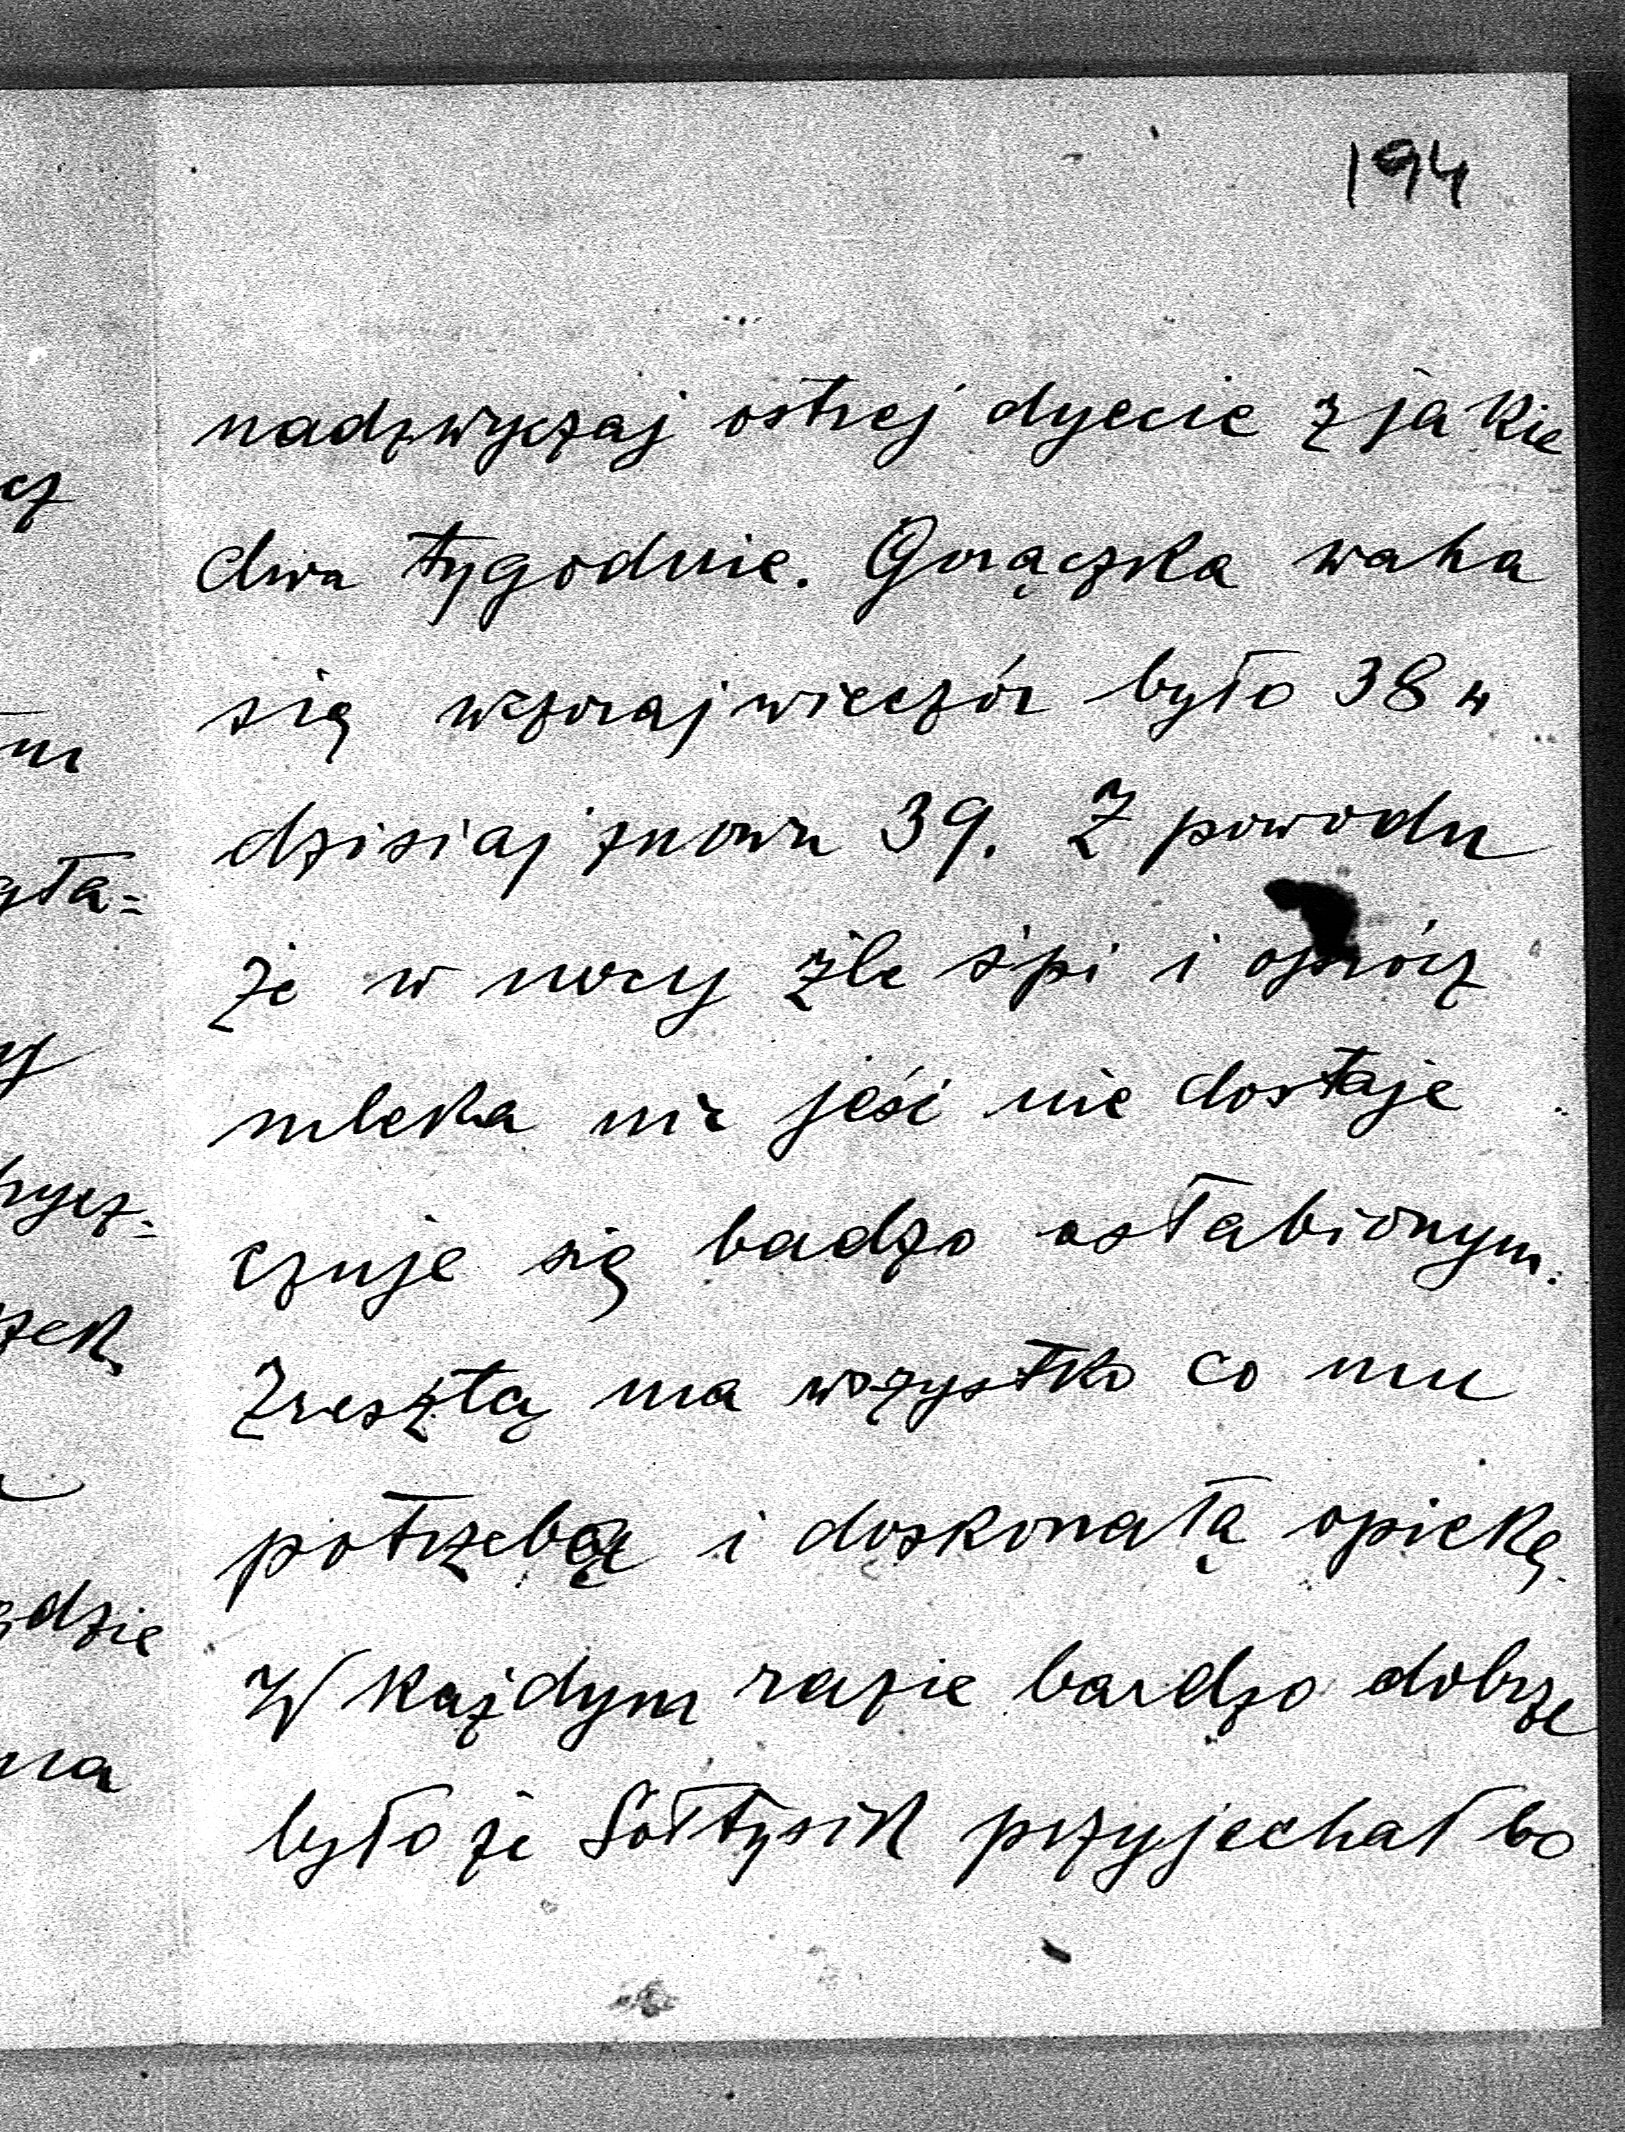 194
nadzwyczaj ostrej dyecie z jakie
dwa tygodnie. Gorączka waha
się wczoraj wieczór było 38 4
dzisiaj znowu 39. Z powodu
że w nocy źle śpi i oprócz
mleka nic jeść nie dostaje
czuje się badzo osłabionym.
Zresztą ma wszystko co mu
potrzeba i doskonałą opiekę.
W każdym razie bardzo dobrze
było że Sołtysik przyjechał bo